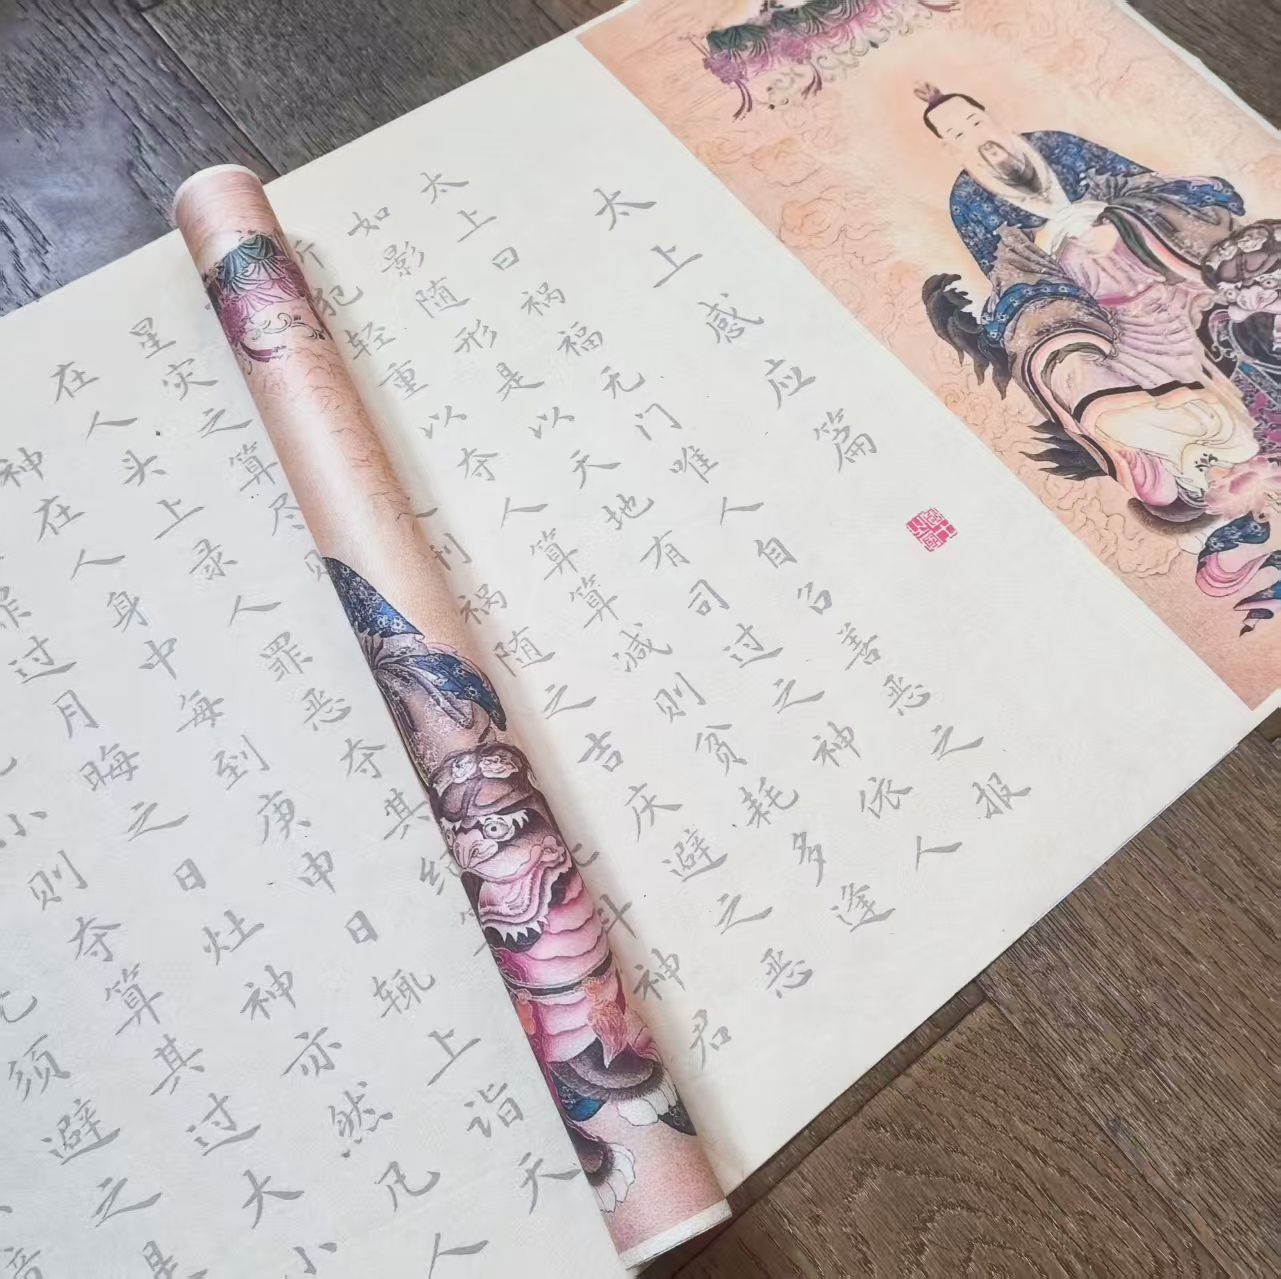 太上感应篇
太上曰祸福无门唯人自召善恶之报
如影随形是以天地有司过之神依人
所犯轻重以夺人算算减则贫耗多逢
刑祸随之吉庆避之恶
星灾之算尽则斗神君
在人头上录人罪恶夺其纪
神在人身中每到庚申日辄上诣天
罪过月晦之日灶神亦然凡人
小则夺算其过大小
须避之是